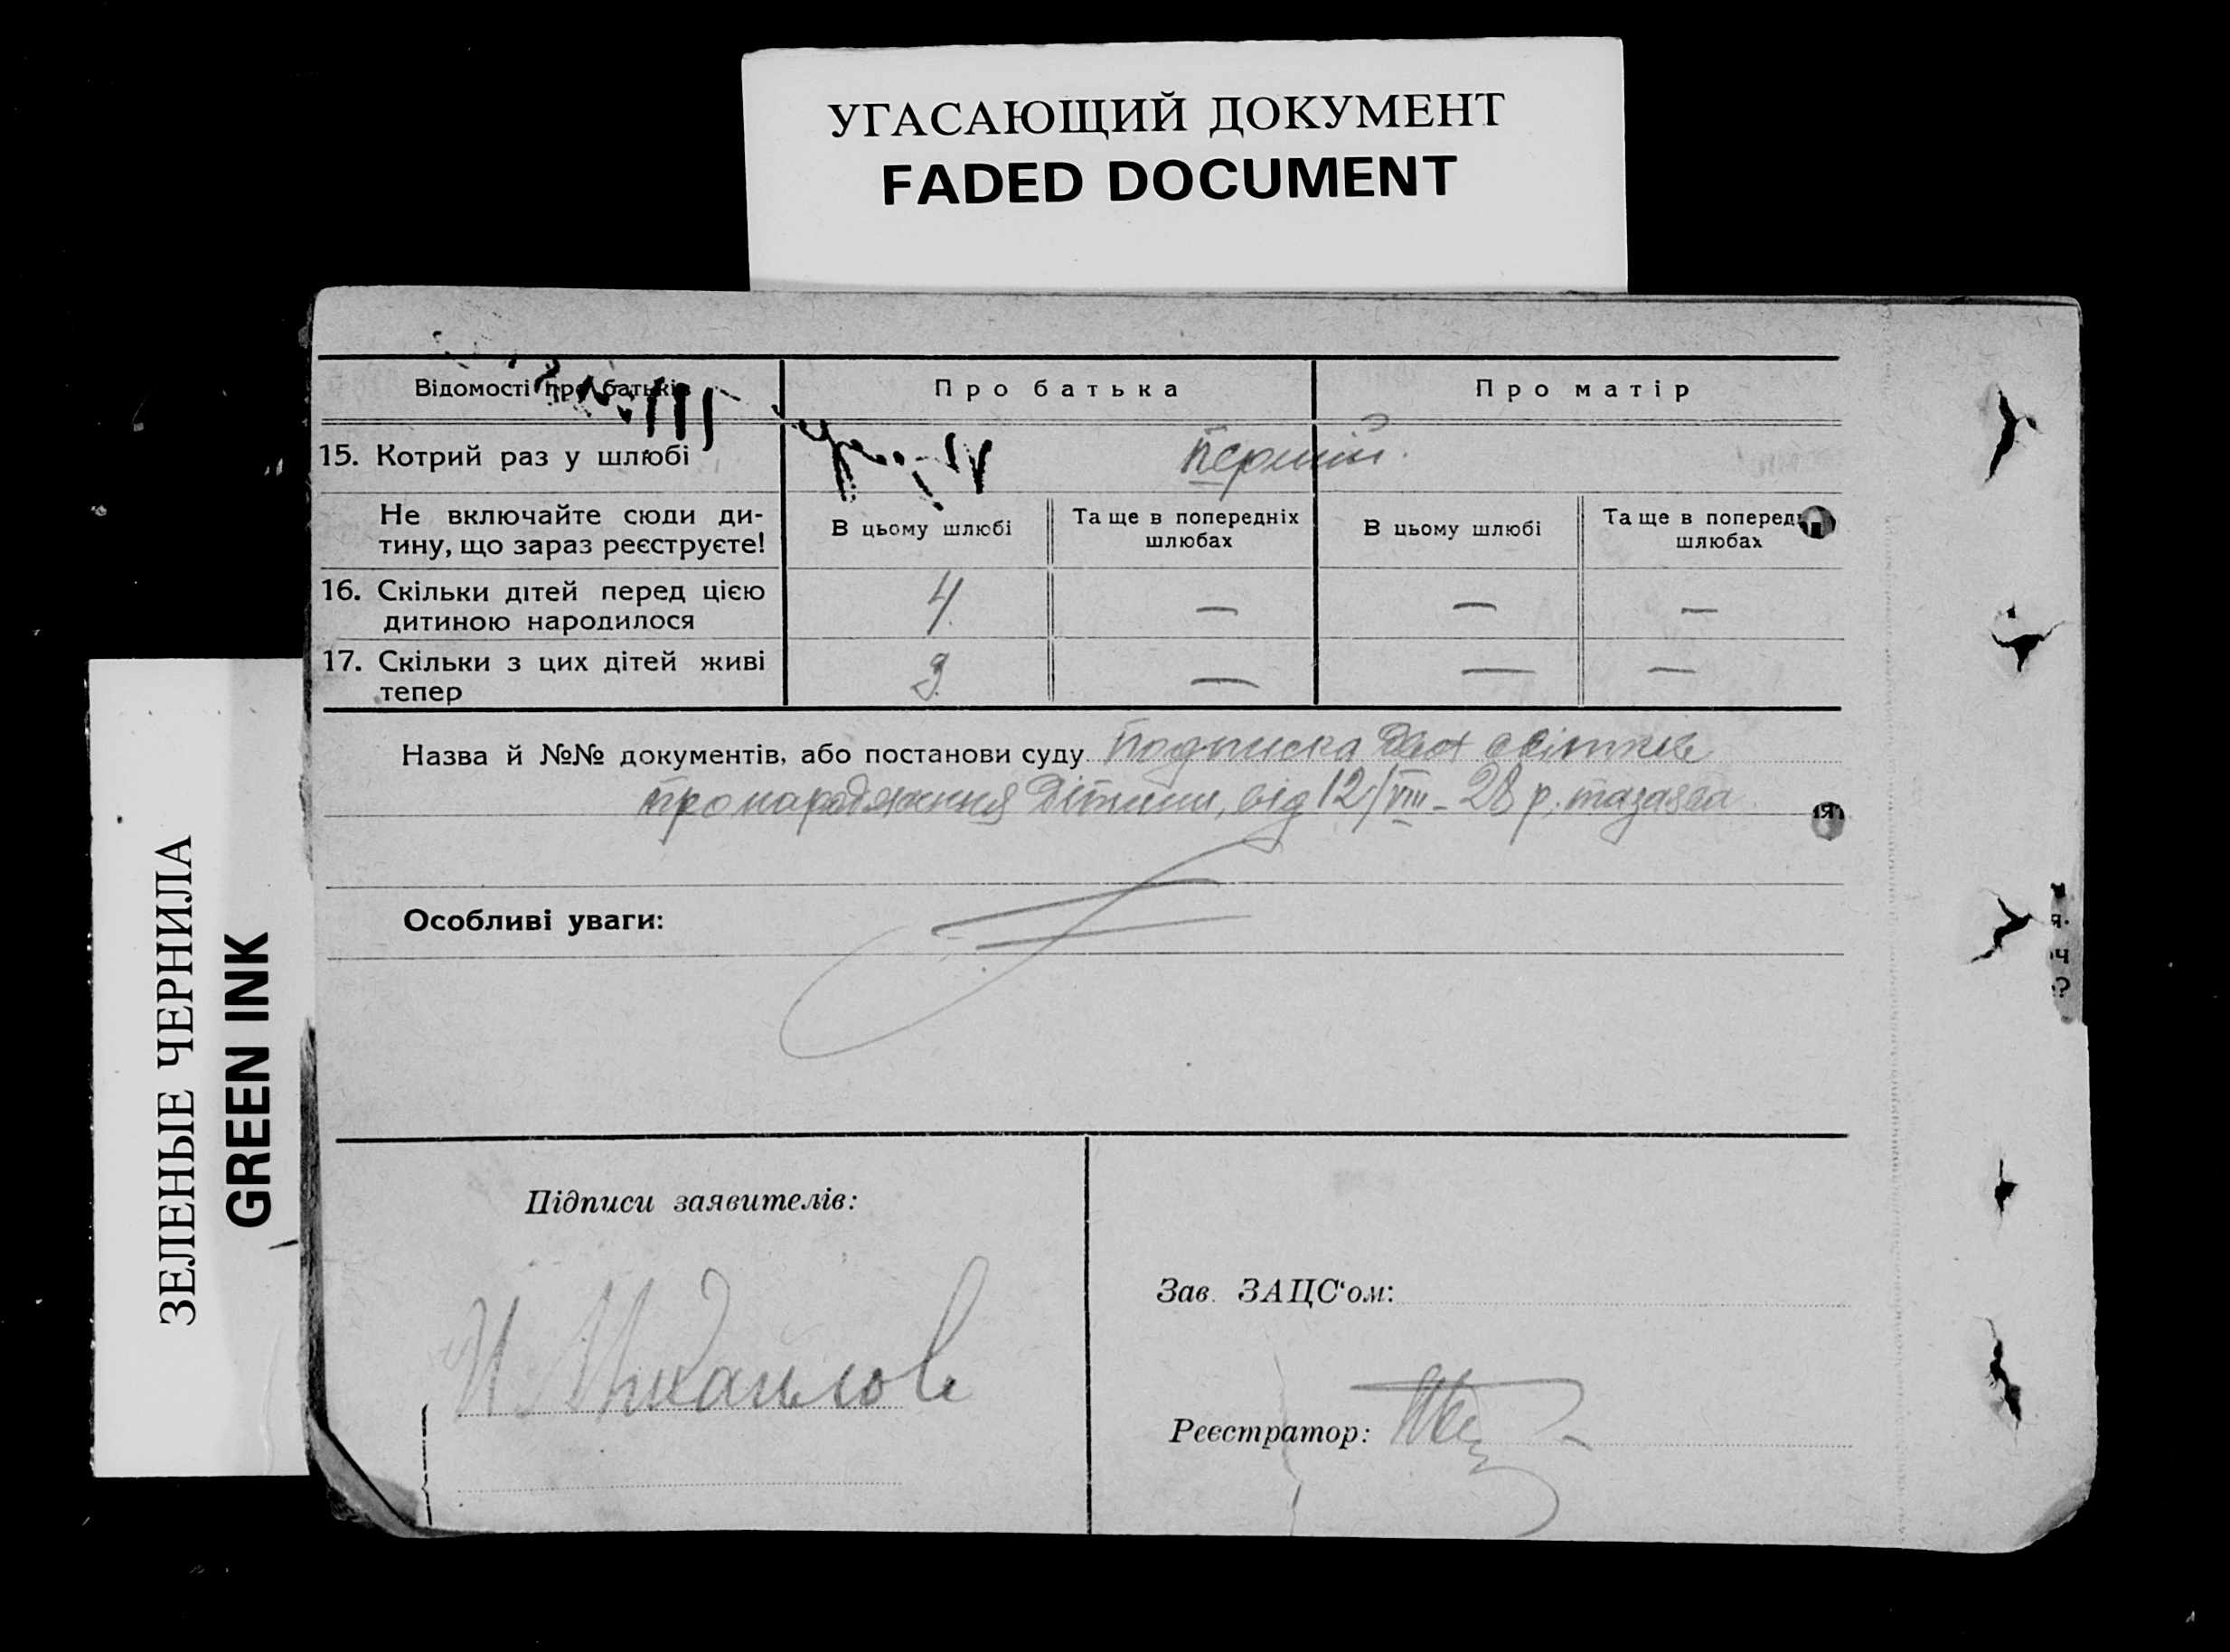 УГАСАЮЩИЙ ДОКУМЕНТ
FADED DOCUMENT
ЗЕЛЕНЫЕ ЧЕРНИЛА
GREEN INK
Відомості про батьків
Про батька
Про матір
15. Котрий раз у шлюбі
перший.
Не включайте сюди ди-
тину, що зараз реєструєте!
В цьому шлюбі
Та ще в попередніх
шлюбах
В цьому шлюбі
Та ще в поперед
шлюбах
16. Скільки дітей перед цією
дитиною народилося
4.
—
—
—
17. Скільки з цих дітей живі
тепер
3.
—
—
—
Назва й №№ документів, або постанови суду Подписка двох світків
про народження дітини, від 12/VIII – 28 р. та заява
Особливі уваги:
Підписи заявителів:
И. Михайлов
Зав. ЗАЦС‘ом:
Реєстратор: